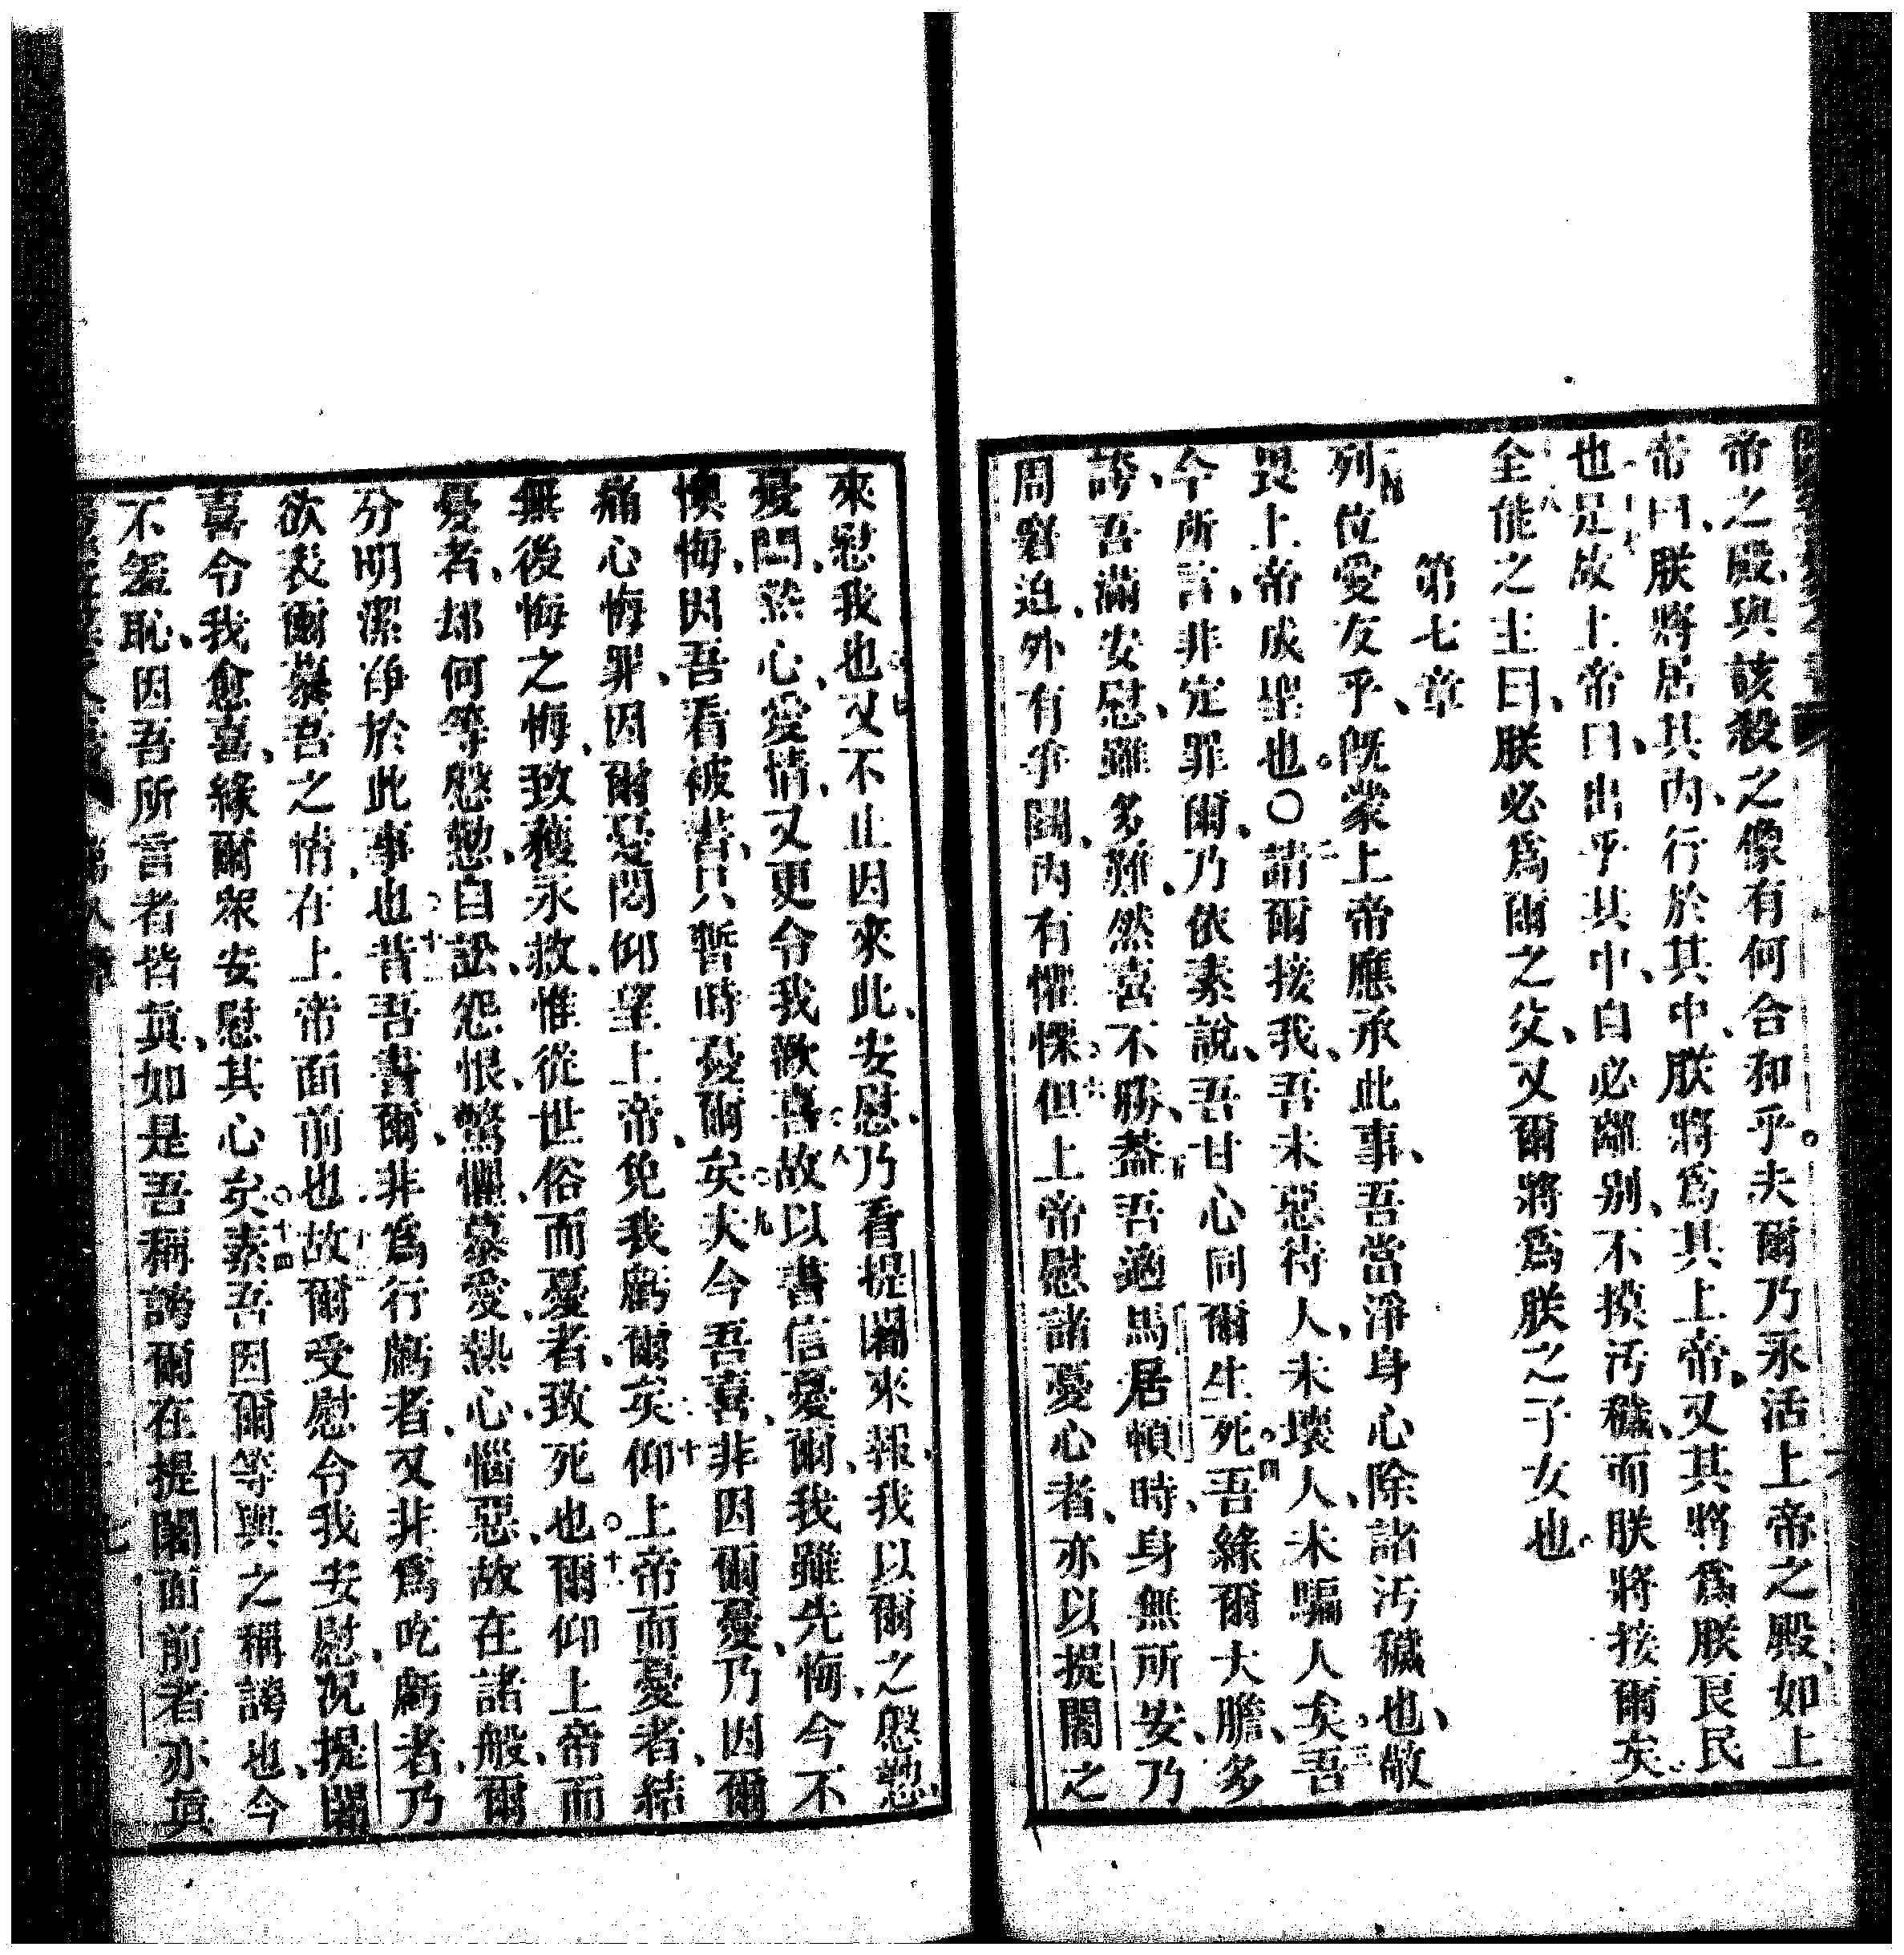 帝之殿、與該殺之像有何合和乎。夫爾乃永活上帝之殿、如上
帝曰、朕將居其內、行於其中、朕將爲其上帝、又其將爲朕良民
也是故上帝曰、出乎其中、自必離別、不摸汚穢、而朕將接爾矣
全能之主曰、朕必爲爾之父、又爾將爲朕之子女也
第七章
列位愛友乎、旣蒙上帝應承此事、吾當淨身心除諸汚穢也、敬
畏上帝成聖也。〇請爾接我、吾未惡待人、未壞人、未騙人矣。吾
今所言、非定罪爾、乃依素說、吾甘心同爾生死。吾緣爾大膽、多
誇、吾滿安慰、雖多難、然喜不勝、蓋吾適馬居頓時、身無所安、乃
周窘迫、外有爭鬭、內有懼慄但上帝慰諸憂心者、亦以提闍之
來慰我也又不止因來此、安慰、乃看提闍來報、我以爾之慇懃、
憂悶、熱心、愛情、又更令我歡喜故以書信憂爾、我雖先悔、今不
懊悔、因吾看被書、只暫時憂爾矣夫今吾喜、非因爾憂、乃因爾
痛心悔罪、因爾憂悶仰望上帝、免我虧爾矣仰上帝而憂者、結
無後悔之悔、致獲永救、惟從世俗而憂者、致死也。爾仰上帝而
憂者、却何等慇懃、自訟、怨恨、驚懼、慕愛、熱心、惱惡、故在諸般、爾
分明潔淨於此事也昔吾書爾、非爲行虧者、又非爲吃虧者、乃
欲表爾慕吾之情、在上帝面前也故爾受慰令我安慰、況提闍
喜令我愈喜、緣爾衆安慰其心矣素吾因爾等與之稱誇也、今
不羞恥、因吾所言者皆眞、如是吾稱誇爾在提闍面前者亦眞